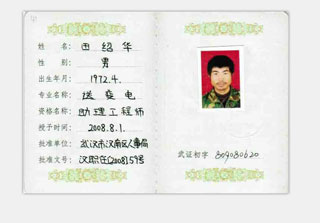 姓 名: 田绍华
性 别: 男
出生年月: 1972.4.
专业名称: 送变电
资格名称: 助理工程师
授予时间: 2008.8.1.
批准单位: 武汉市汉南区人事局
批准文号: 汉职任[2008]59号
武证初字 809080620